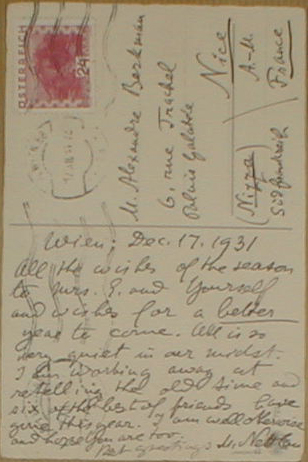 ÖSTERREICH
24
M. Alexandre Berkman
6, rue Trachel
Palais Galatée
Nice
A.-M.
France
(Nizza)
Südfrankreich
Wien, Dec. 17. 1931
All the wishes of the season
to Mrs. E. and yourself
and wishes for a better
year to come. All is so
very quiet in our midst.
I am working away at
retelling the old time and
six of the best of friends have
gone this year. I am well otherwise
and hope you are too.
Best greetings M. Nettlau